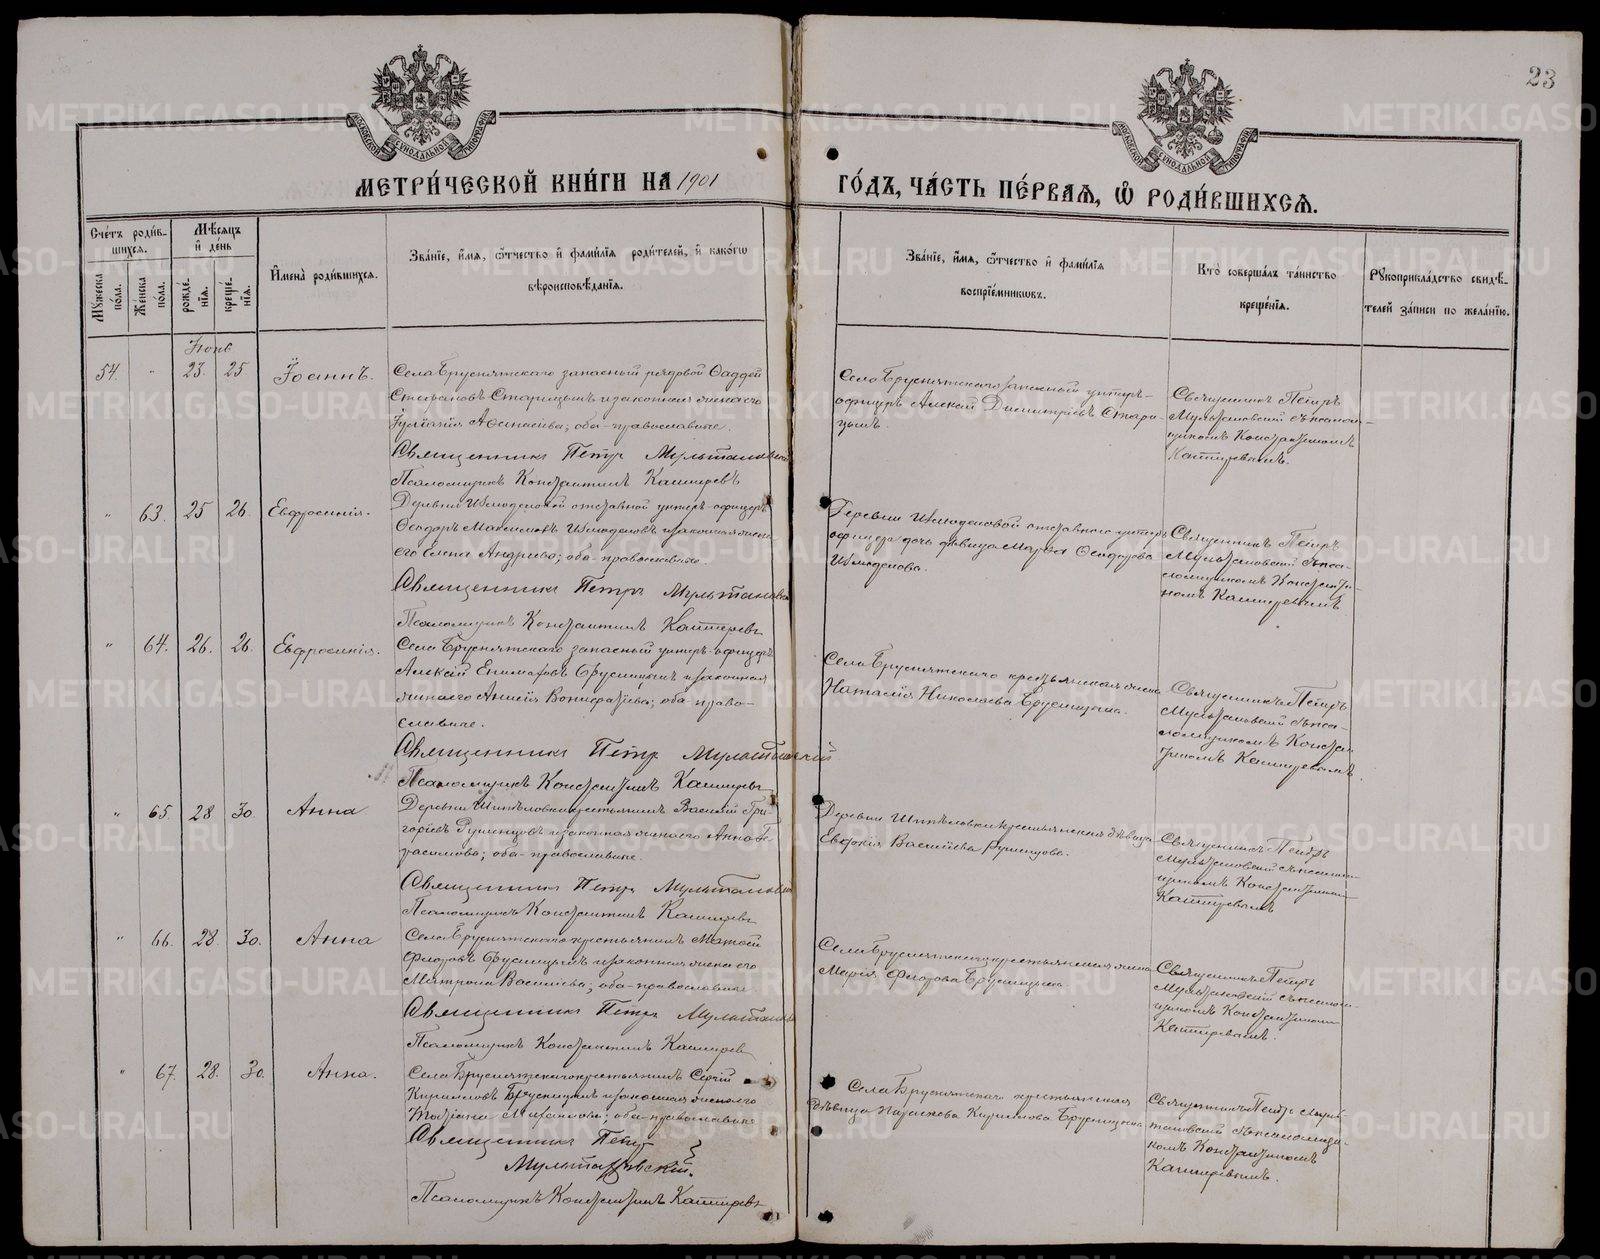 23
МОСКОВСКОЙ СѴНОДАЛЬНОЙ ТИПОГРАФІИ
МОСКОВСКОЙ СѴНОДАЛЬНОЙ ТИПОГРАФІИ
МЕТРИ́ЧЕСКОЙ КНИ́ГИ НА 1901 ГО́ДЪ, ЧА́СТЬ ПЕ́РВАЯ, Ѿ РОДИ́ВШИХСЯ.
Сче́тъ роди́в-
шихся.
Мѣ́сяцъ
и де́нь
Му́жеска
по́ла.
Же́нска
по́ла.
рожде́-
нія.
креще́-
нія.
Имена̀ роди́вшихся.
Зва́ніе, и́мя, ѻ҆́тчество и фами́лія роди́телей, и како́гѡ
вѣроисповѣ́данія.
Зва́ніе, и́мя, ѻ҆́тчество и фами́лія
воспріе́мникѡвъ.
Кто̀ соверша́лъ та́инство
креще́нія.
Рукоприкла́дство свидѣ́-
телей за́писи по жела́нію.
Іюнь
54. " 23. 25 Іоаннъ.
Села Бруснятскаго запасный рядовой Фаддей
Стефановъ Старицынъ и законная жена его
Іуліанія Афанасіева; оба православные.
Священникъ Петръ Мультановскій
Псаломщикъ Константинъ Кашперевъ
Села Бруснятскаго запасный унтеръ-
офицеръ Алексій Димитріевъ Стари-
цынъ.
Священникъ Петръ
Мультановскій съ псалом-
щикомъ Константиномъ
Кашперевымъ.
" 63. 25 26. Евфросинія.
Деревни отставной унтеръ-офицеръ
Ѳеодоръ Максимовъ и законная жена
его Елена Андреева; оба православные.
Священникъ Петръ Мультановскій
Псаломщикъ Константинъ Кашперевъ
Деревни отставного унтеръ-
офицера дочь дѣвица Марѳа Ѳеодорова
Священникъ Петръ
Мультановскій съ пса-
ломщикомъ Константи-
номъ Кашперевымъ
" 64. 26. 26. Евфросинія.
Села Бруснятскаго запасный унтеръ-офицеръ
Алексій Брусницынъ и законная
жена его Анисія Вонифатіева; оба право-
славные.
Священникъ Петръ Мультановскій
Псаломщикъ Константинъ Кашперевъ
Села Бруснятскаго крестьянская жена
Наталія Николаева Брусницына.
Священникъ Петръ
Мультановскій съ пса-
ломщикомъ Констан-
тиномъ Кашперевымъ.
" 65. 28 30. Анна
Деревни Шипѣловки крестьянинъ Василій Гри-
горіевъ Румянцовъ и законная жена его Анна Ге-
расимова; оба православные.
Священникъ Петръ Мультановскій
Псаломщикъ Константинъ Кашперевъ
Деревни Шипѣловки крестьянская дѣвица
Евдокія Васильева Румянцова.
Священникъ Петръ
Мультановскій съ псалом-
щикомъ Константиномъ
Кашперевымъ
" 66. 28. 30. Анна
Села Бруснятскаго крестьянинъ Матѳей
Брусницынъ и законная жена его
Матрона Васильева; оба православные.
Священникъ Петръ Мультановскій
Псаломщикъ Константинъ Кашперевъ
Села Бруснятскаго крестьянская жена
Марія Брусницына
Священникъ Петръ
Мультановскій съ псалом-
щикомъ Константиномъ
Кашперевымъ.
" 67. 28. 30. Анна.
Села Бруснятскаго крестьянинъ Сергій
Кирилловъ Брусницынъ и законная жена его
Татіана оба православные
Священникъ Петръ
Мультановскій.
Псаломщикъ Константинъ Кашперевъ
Села Бруснятскаго крестьянская
дѣвица Параскева Кириллова Брусницына
Священникъ Петръ Муль-
тановскій съ псаломщи-
комъ Константиномъ
Кашперевымъ.
METRIKI.GASO-URAL.RU